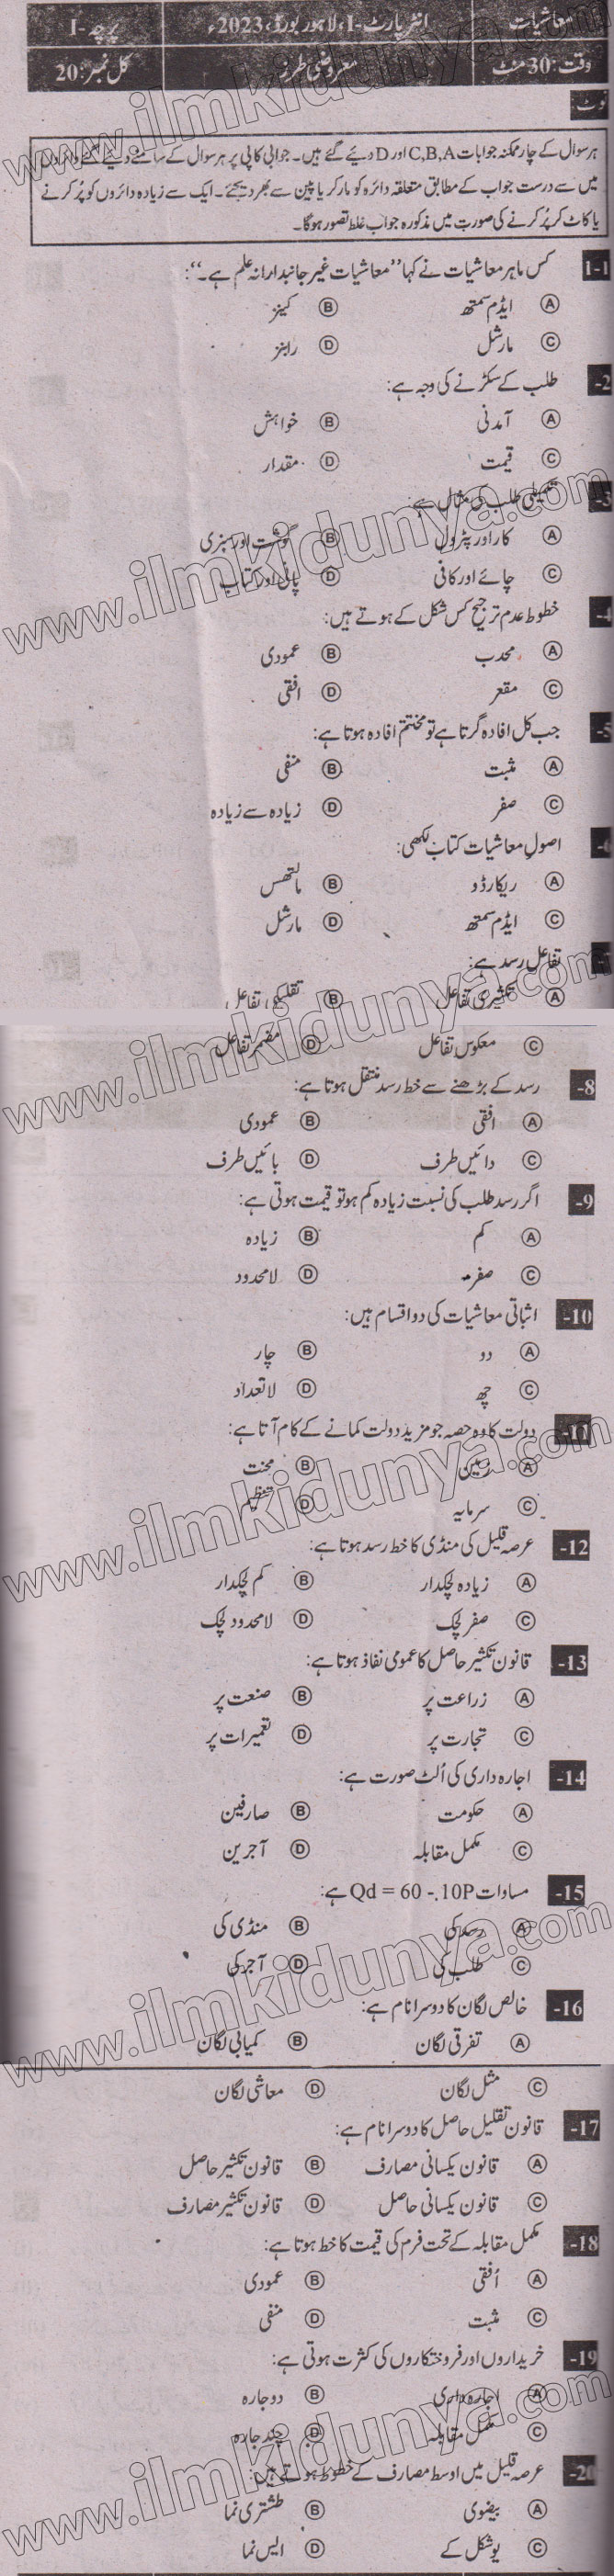 معاشیات انٹر پارٹ-I، لاہور بورڈ، 2023ء پرچہ-I
وقت: 30 منٹ معروضی طرز کل نمبر: 20
نوٹ:
ہر سوال کے چار ممکنہ جوابات C,B,A اور D دیئے گئے ہیں۔ جوابی کاپی پر ہر سوال کے سامنے دیئے گئے دائروں
میں سے درست جواب کے مطابق متعلقہ دائرہ کو مارکر یا پین سے بھر دیجئے۔ ایک سے زیادہ دائروں کو پُر کرنے
یا کاٹ کر پُر کرنے کی صورت میں مذکورہ جواب غلط تصور ہوگا۔
1-1 کس ماہر معاشیات نے کہا ”معاشیات غیر جانبدارانہ علم ہے۔“:
A ایڈم سمتھ B کینز
C مارشل D رابنز
2- طلب کے سکڑنے کی وجہ ہے:
A آمدنی B خواہش
C قیمت D مقدار
3- طلب کی مثال ہے:
A کار اور پٹرول B گوشت اور سبزی
C چائے اور کافی D پانی اور کتاب
4- خطوط عدم ترجیح کس شکل کے ہوتے ہیں:
A محدب B عمودی
C مقعر D افقی
5- جب کل افادہ گرتا ہے تو مختتم افادہ ہوتا ہے:
A مثبت B منفی
C صفر D زیادہ سے زیادہ
6- اصولِ معاشیات کتاب لکھی:
A ریکارڈو B مالتھس
C ایڈم سمتھ D مارشل
7- تفاعل رسد ہے:
A تکثیری تفاعل B تقلیلی تفاعل
C معکوس تفاعل D مضمر تفاعل
8- رسد کے بڑھنے سے خط رسد منتقل ہوتا ہے:
A افقی B عمودی
C دائیں طرف D بائیں طرف
9- اگر رسد طلب کی نسبت زیادہ کم ہو تو قیمت ہوتی ہے:
A کم B زیادہ
C صفر D لامحدود
10- اثباتی معاشیات کی دو اقسام ہیں:
A دو B چار
C چھ D لاتعداد
11- دولت کا وہ حصہ جو مزید دولت کمانے کے کام آتا ہے:
A زمین B محنت
C سرمایہ D تنظیم
12- عرصہ قلیل کی منڈی کا خط رسد ہوتا ہے:
A زیادہ لچکدار B کم لچکدار
C صفر لچک D لامحدود لچک
13- قانون تکثیر حاصل کا عمومی نفاذ ہوتا ہے:
A زراعت پر B صنعت پر
C تجارت پر D تعمیرات پر
14- اجارہ داری کی اُلٹ صورت ہے:
A حکومت B صارفین
C مکمل مقابلہ D آجرین
15- مساوات Qd = 60 - 10P ہے:
A رسد کی B منڈی کی
C طلب کی D آجر کی
16- خالص لگان کا دوسرا نام ہے:
A تفرقی لگان B کمیابی لگان
C مثل لگان D معاشی لگان
17- قانون تقلیل حاصل کا دوسرا نام ہے:
A قانون یکسانی مصارف B قانون تکثیر حاصل
C قانون یکسانی حاصل D قانون تکثیر مصارف
18- مکمل مقابلہ کے تحت فرم کی قیمت کا خط ہوتا ہے:
A اُفقی B عمودی
C مثبت D منفی
19- خریداروں اور فروختکاروں کی کثرت ہوتی ہے:
A اجارہ داری B دوجارہ
C مکمل مقابلہ D چند جارہ
20- عرصہ قلیل میں اوسط مصارف کے خطوط ہوتے ہیں:
A بیضوی B طشتری نما
C یو شکل کے D ایس نما
www.ilmkidunya.com
www.ilmkidunya.com
www.ilmkidunya.com
www.ilmkidunya.com
www.ilmkidunya.com
www.ilmkidunya.com